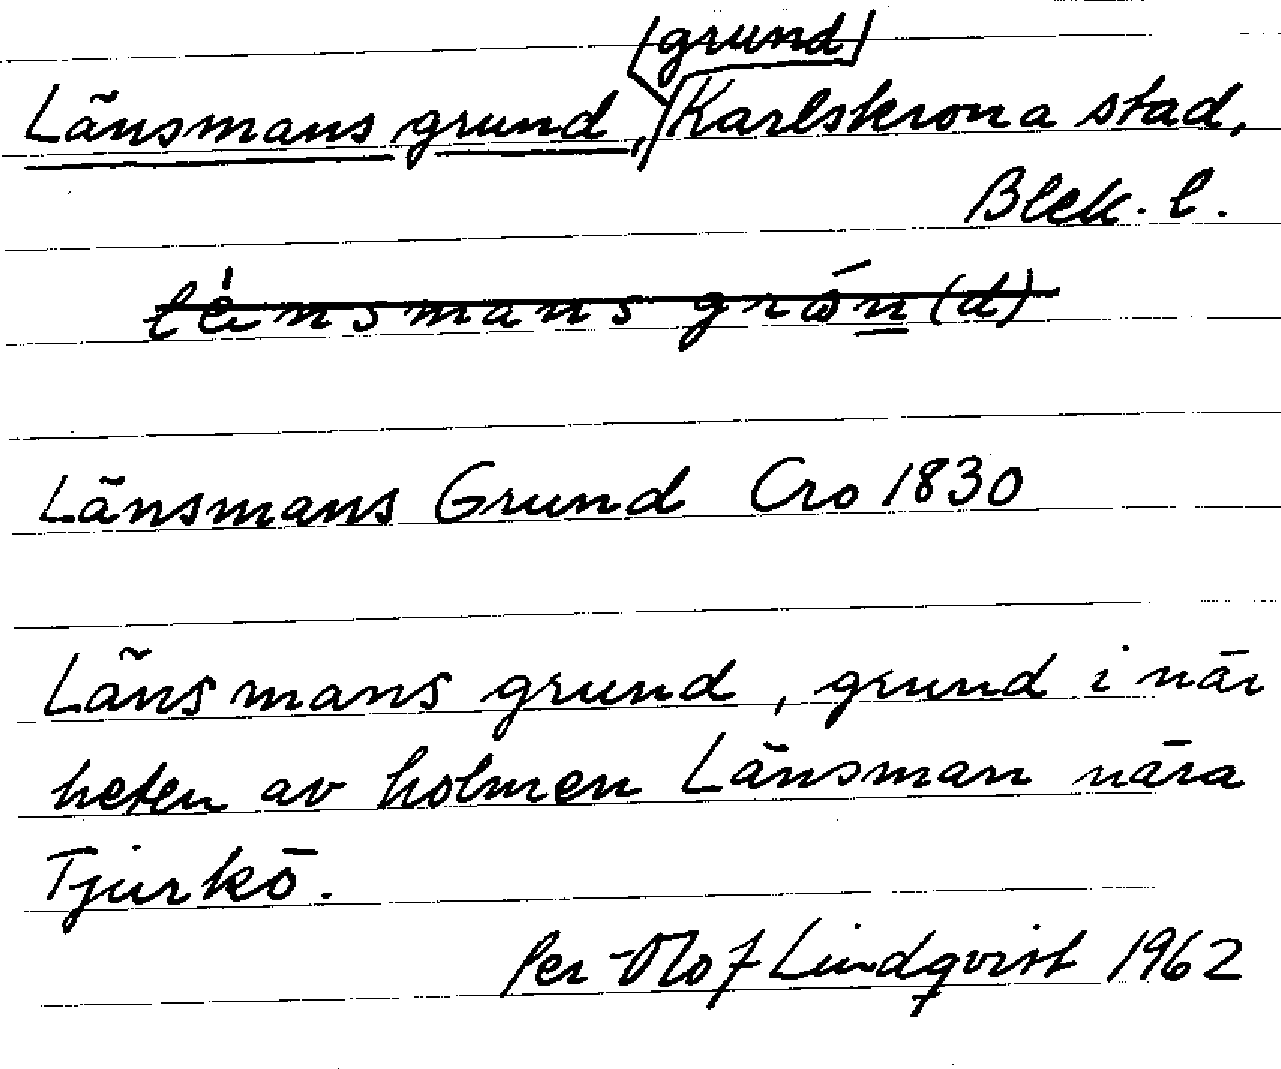 (grund)
Länsmans grund, Karlskrona stad,
Blek. l.
Länsmans Grund Cro 1830
Länsmans grund, grund i när
heten av holmen Länsman nära
Tjurkö.
Per-Olof Lindqvist 1962